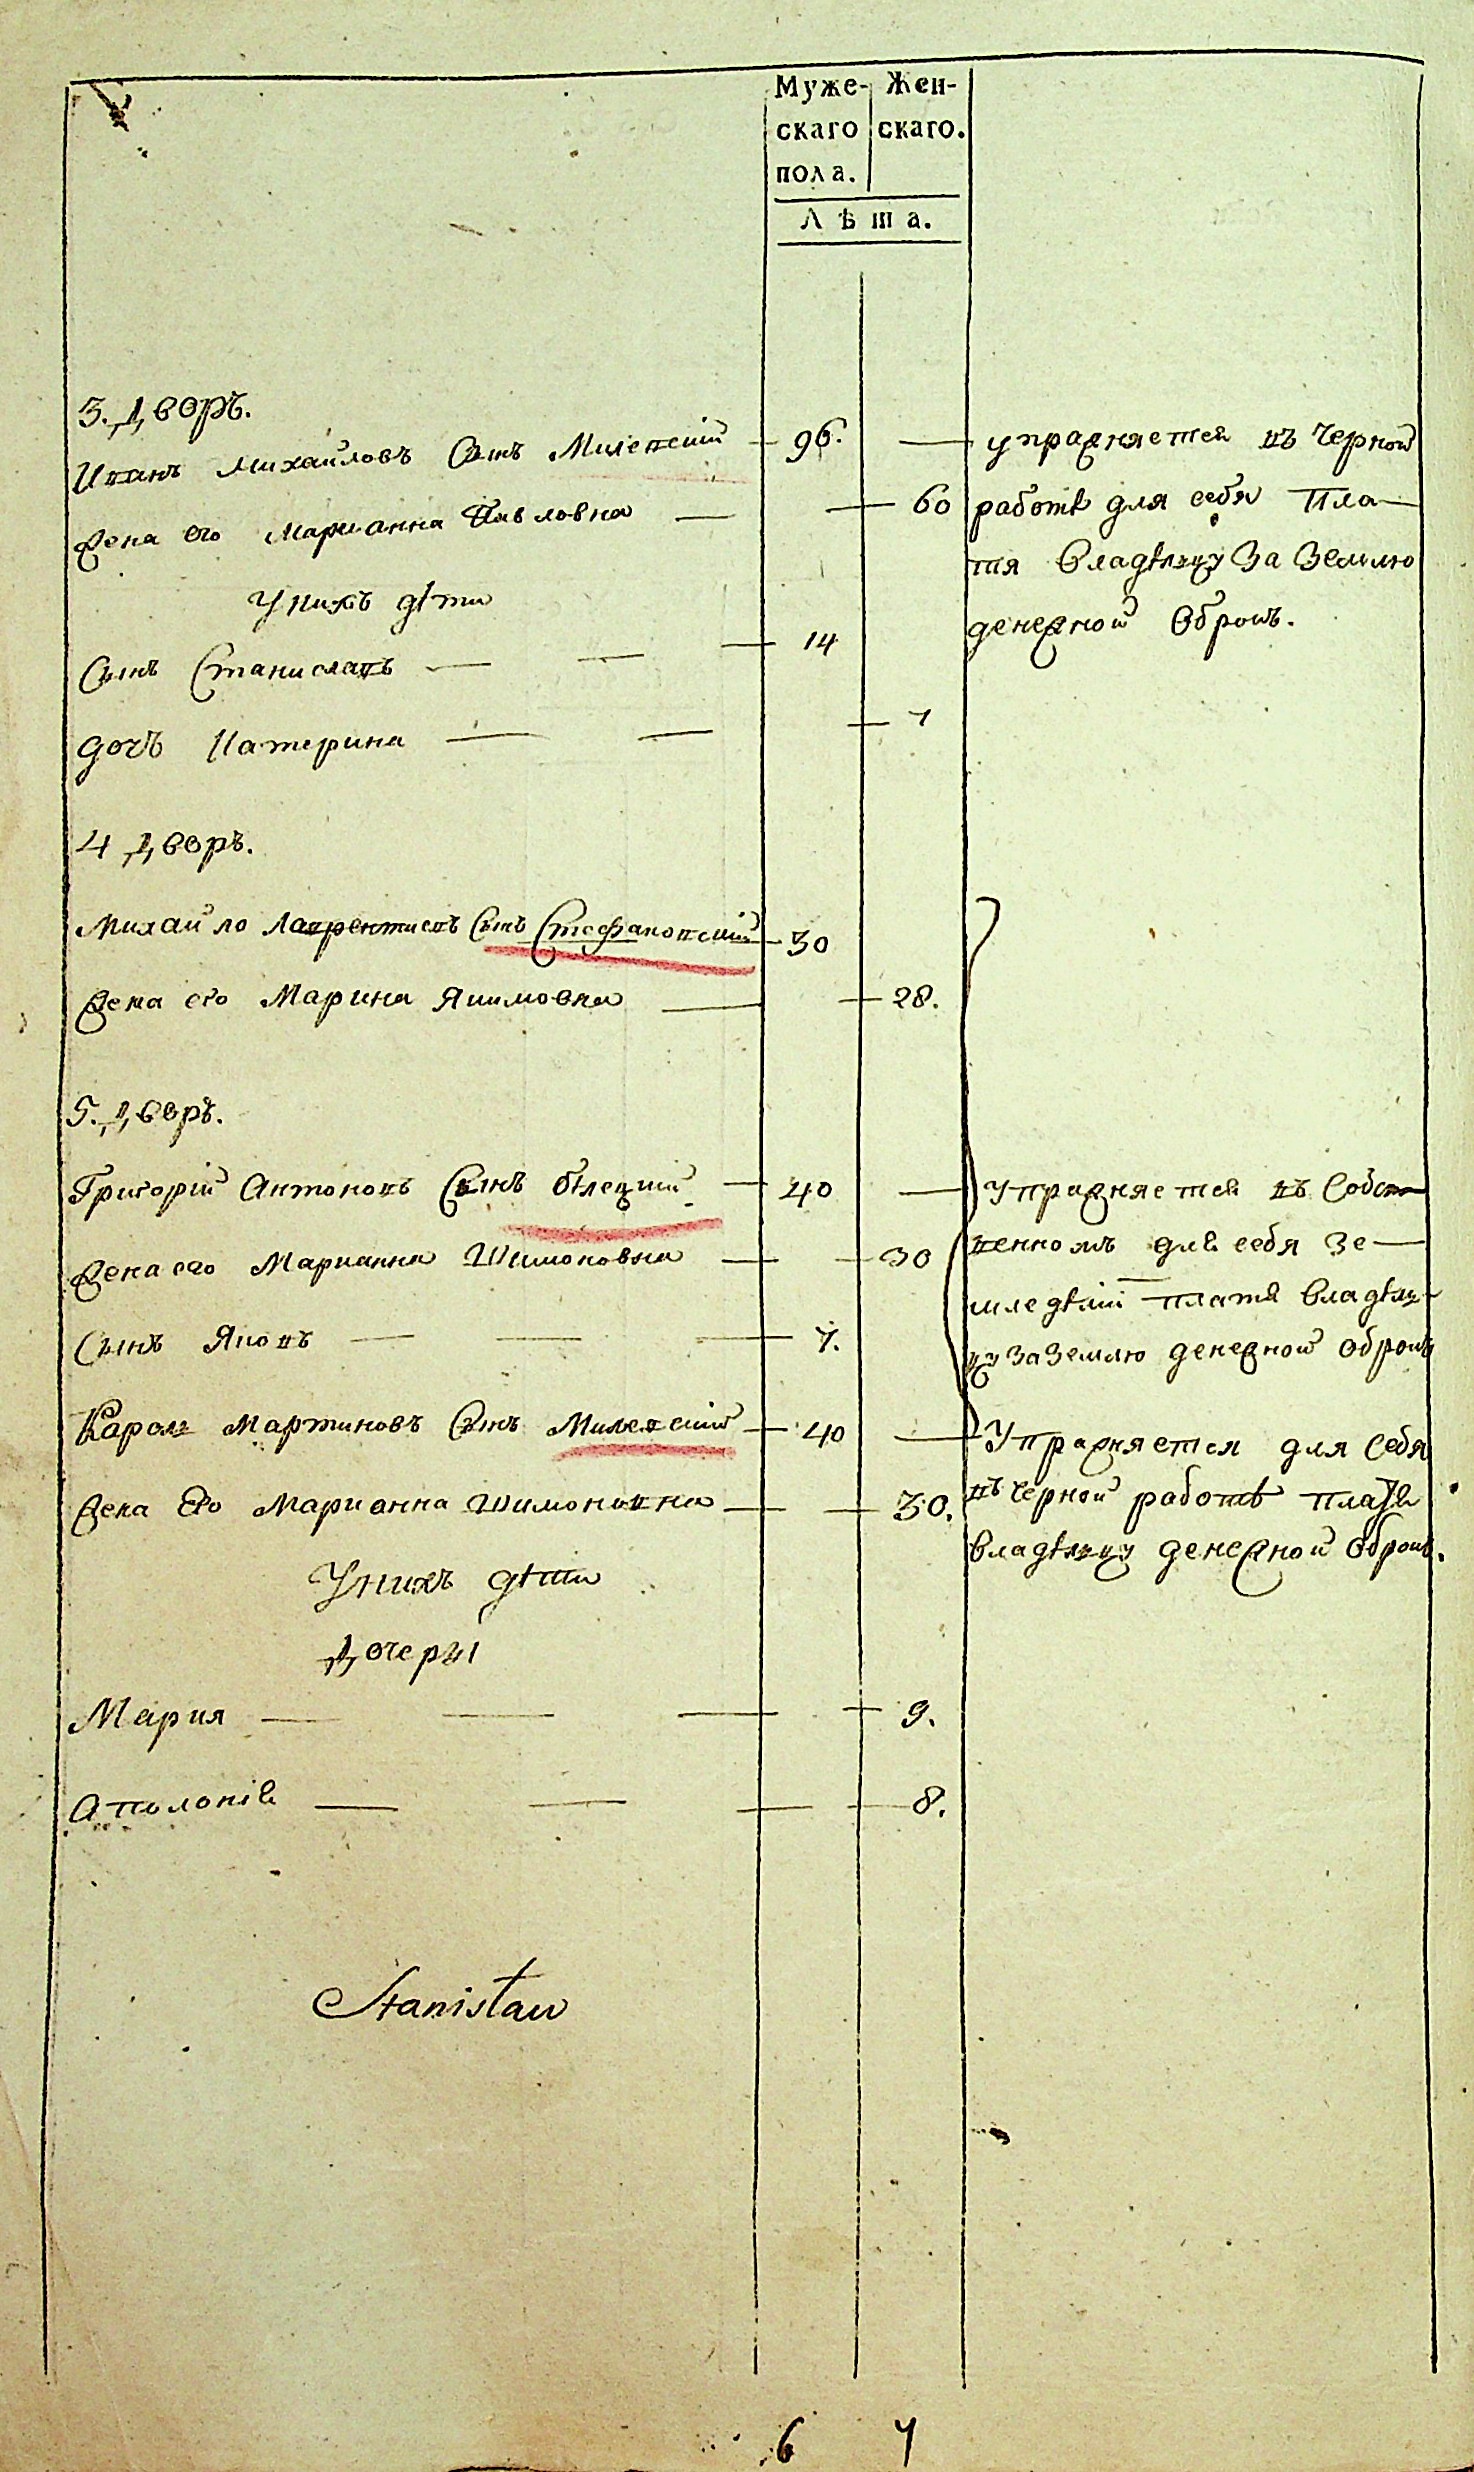 Муже- Жен-
скаго скаго.
пола.
Лѣта.
3. Дворъ.
Иванъ Михайловъ Сынъ Милевский 96. упражняется въ черной
Жена его Марианна Павловна 60 работѣ для себя Пла-
тя владѣлцу За Землю
У нихъ дѣти
денежной Оброкъ.
Сынъ Станиславъ 14
дочь Катерина 7
4 Дворъ.
Михайло Лаврентиевъ Сынъ Стефановский 30
Жена его Марина Якимовна 28.
5. Дворъ.
Григорій Антоновъ Сынъ бѣлецкий 40 Упражняется въ Собст
Жена его Марианна Шимоновна 30 венномъ для себя Зе-
мледѣлии платя владѣл-
Сынъ Яковъ 7.
цу за Землю денежной оброкъ
Кароль Мартиновъ Сынъ Милевский 40 Упражняется для Себя
Жена Его Марианна Шимоновна 30. въ черной работѣ платя
владѣлцу денежной Оброкъ.
У нихъ дѣти
Дочеры
Мария 9.
Аполонія 8.
Stanisław
6 7